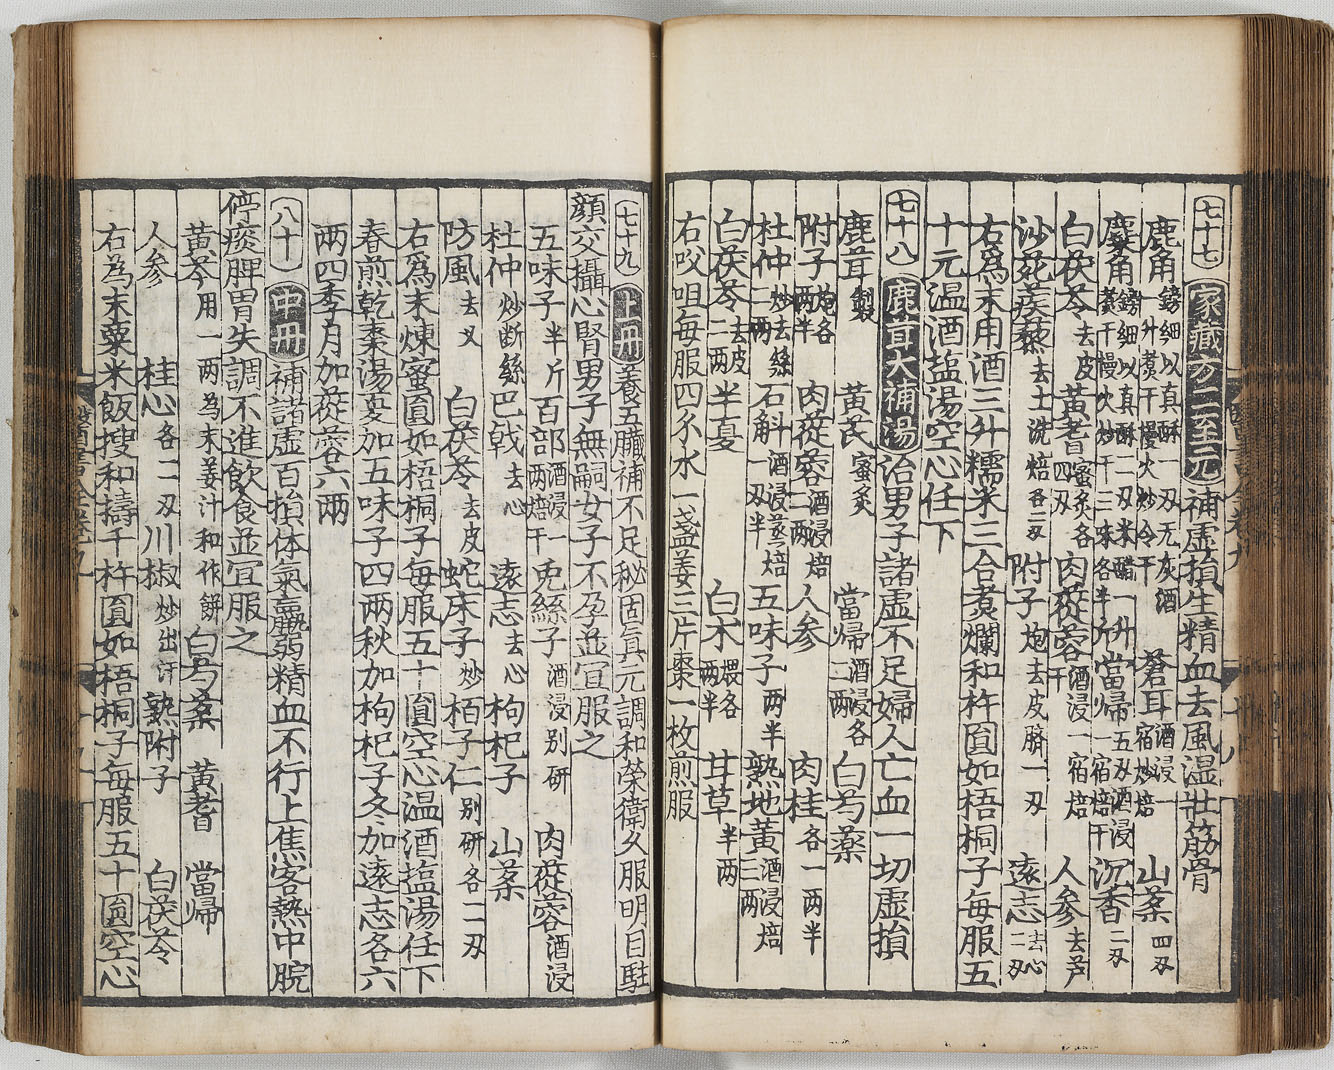 七十七 家藏方二至元 補虛損生精血去風湿壯筋骨
鹿角 鎊細以真酥一刃无灰酒一升煑干慢火炒令干 蒼耳 酒浸一宿炒焙 山藥 四刃
麋角 鎊細以真酥二刃米醋一升煑干慢火炒干三味各半斤 當帰 五刃酒浸一宿焙干 沉香 二刃
白茯苓 去皮 黃耆 蜜炙各四刃 肉蓯蓉 酒浸一宿焙干 人参 去芦
沙苑蒺藜 去土洗焙各二刃 附子 炮去皮臍一刃 遠志 去心二刃
右為末用酒三升糯米三合煮爛和杵圎如梧桐子每服五
十元温酒塩湯空心任下
七十八 鹿茸大補湯 治男子諸虛不足婦人亡血一切虛損
鹿茸 製 黃芪 蜜炙 當歸 酒浸各二两 白芍藥
附子 炮各两半 肉蓯蓉 酒浸焙二两 人参 肉桂 各一两半
杜仲 炒去絲一两 石斛 酒浸蒸焙一刃半 五味子 两半 熟地黃 酒浸焙三两
白茯苓 去皮二两 半夏 白朮 煨各两半 甘草 半两
右㕮咀每服四分水一盞姜三片棗一枚煎服
七十九 上冊 養五臟補不足秘固真元調和榮衛久服明目駐
顔交攝心腎男子無嗣女子不孕並宜服之
五味子 半斤 百部 酒浸焙干两 兎絲子 酒浸别研 肉蓯蓉 酒浸
杜仲 炒断絲 巴戟 去心 遠志 去心 枸杞子 山藥
防風 去叉 白茯苓 去皮 蛇床子 炒 栢子仁 别研各二刃
右爲末煉蜜圓如梧桐子每服五十圓空心温酒塩湯任下
春煎乾棗湯夏加五味子四两秋加枸杞子冬加遠志各六
两四季月加蓯蓉六两
八十 中冊 補諸虛百損体氣羸弱精血不行上焦客熱中脘
停痰脾胃失調不進飲食並宜服之
黃芩 用一两為末姜汁和作餅 白芍藥 黃耆 當歸
人参 桂心 各一刃 川椒 炒出汗 熟附子 白茯苓
右為末粟米飯搜和擣千杵圎如梧桐子每服五十圎空心